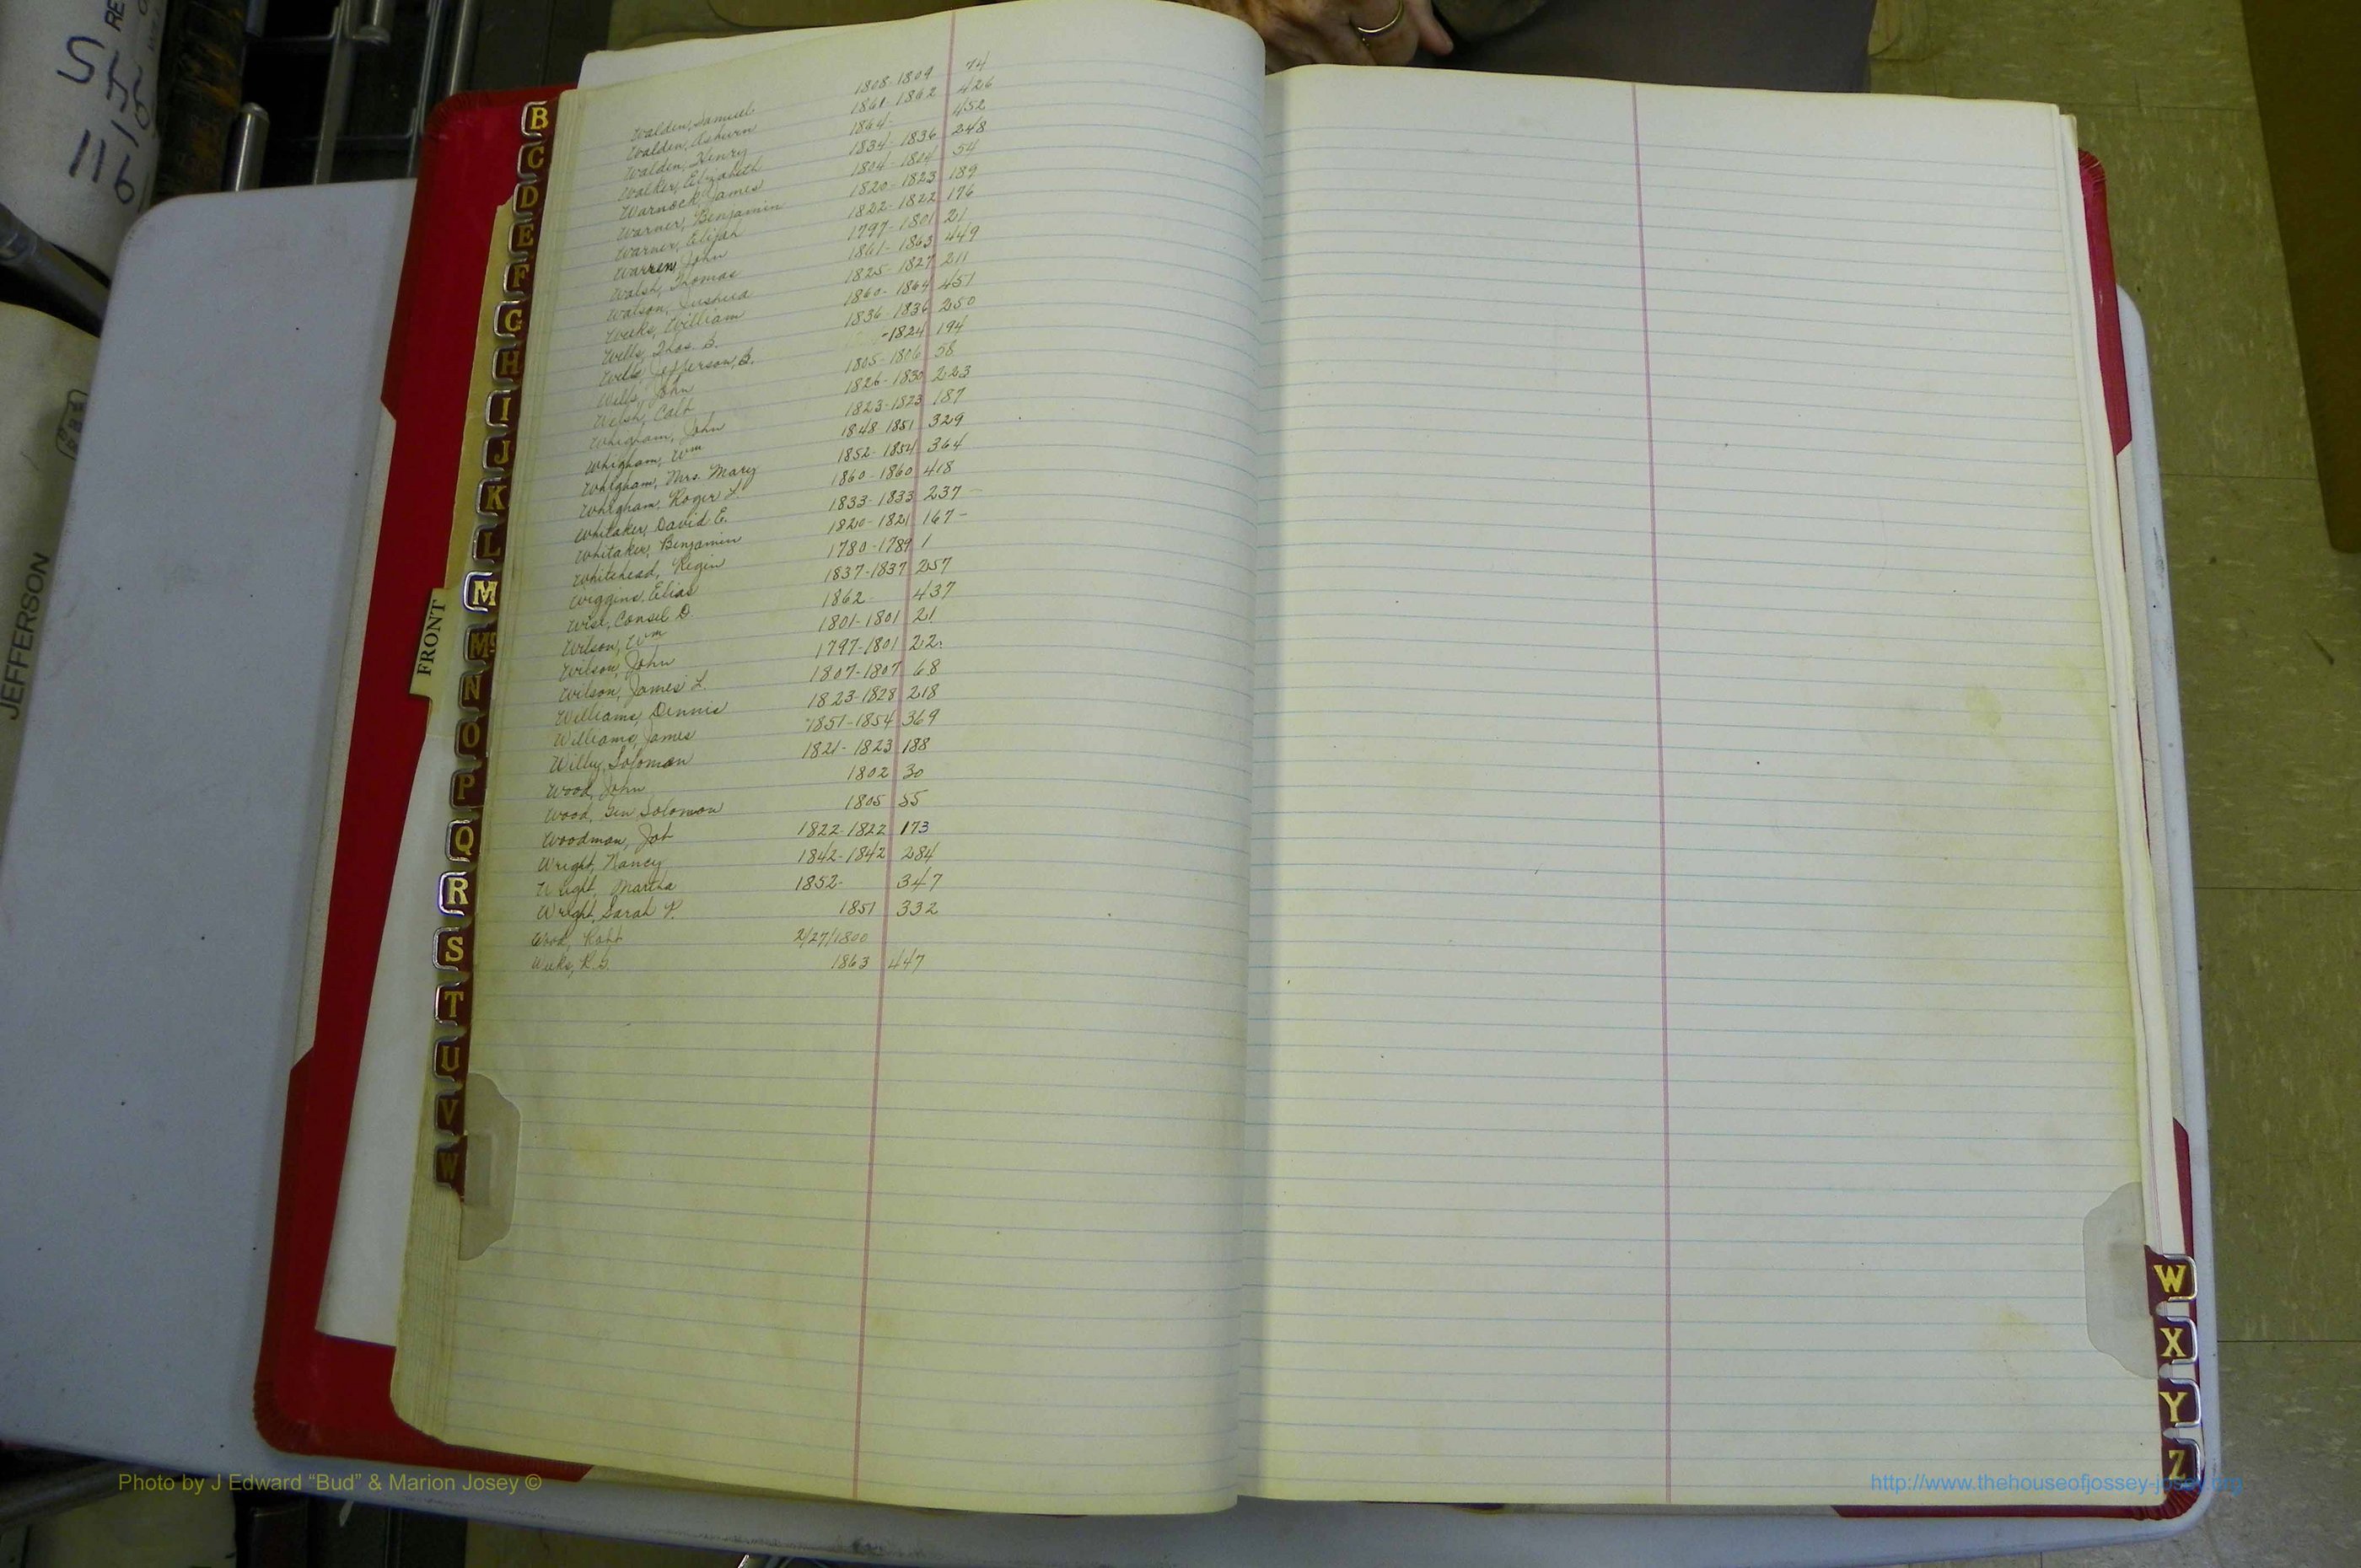 Walden, Samuel 1808-1809 74
Walden, 1861-1862 426
Walden, Henry 1864- 452
Walker, Elizabeth 1834-1836 248
Warnock, James 1804-1804 54
Warner, Benjamin 1820-1823 189
Warner, Elijah 1822-1822 176
Warren, John 1797-1801 21
Walsh, Thomas 1861-1863 449
Watson, 1825-1827 211
Weeks, William 1860-1864 451
Wells, Thos. B. 1836-1836 250
Wells, Jefferson, B. -1824 194
Wells, John 1805-1806 58
Welsh, Calb 1826-1830 223
Whigham, John 1823-1823 187
Whigham, Wm 1848-1851 329
Whigham, Mrs. Mary 1852-1854 364
Whigham, Roger L. 1860-1860 418
Whitaker, David E. 1833-1833 237 -
Whitaker, Benjamin 1820-1821 167 -
Whitehead, 1780-1789 1
Wiggins, Elias 1837-1837 257
Wise, Consel D. 1862- 437
Wilson, Wm 1801-1801 21
Wilson, John 1797-1801 22
Wilson, James L. 1807-1807 68
Williams, Dennis 1823-1828 218
Williams, James 1851-1854 369
Solomon 1821-1823 188
Wood, John 1802 30
Wood, Gen Solomon 1805 55
Woodman, Job 1822-1822 173
Wright, Nancy 1842-1842 284
Wright, Martha 1852- 347
Wright, Sarah P. 1851 332
Wood, Robt 2/27/1800
Weeks, R.S. 1863 447
B
C
D
E
F
G
H
I
J
K
L
M
Mc
N
O
P
Q
R
S
T
U
V
W
FRONT
JEFFERSON
W
X
Y
Z
Photo by J Edward “Bud” & Marion Josey ©
http://www.thehouseofjossey-josey.org